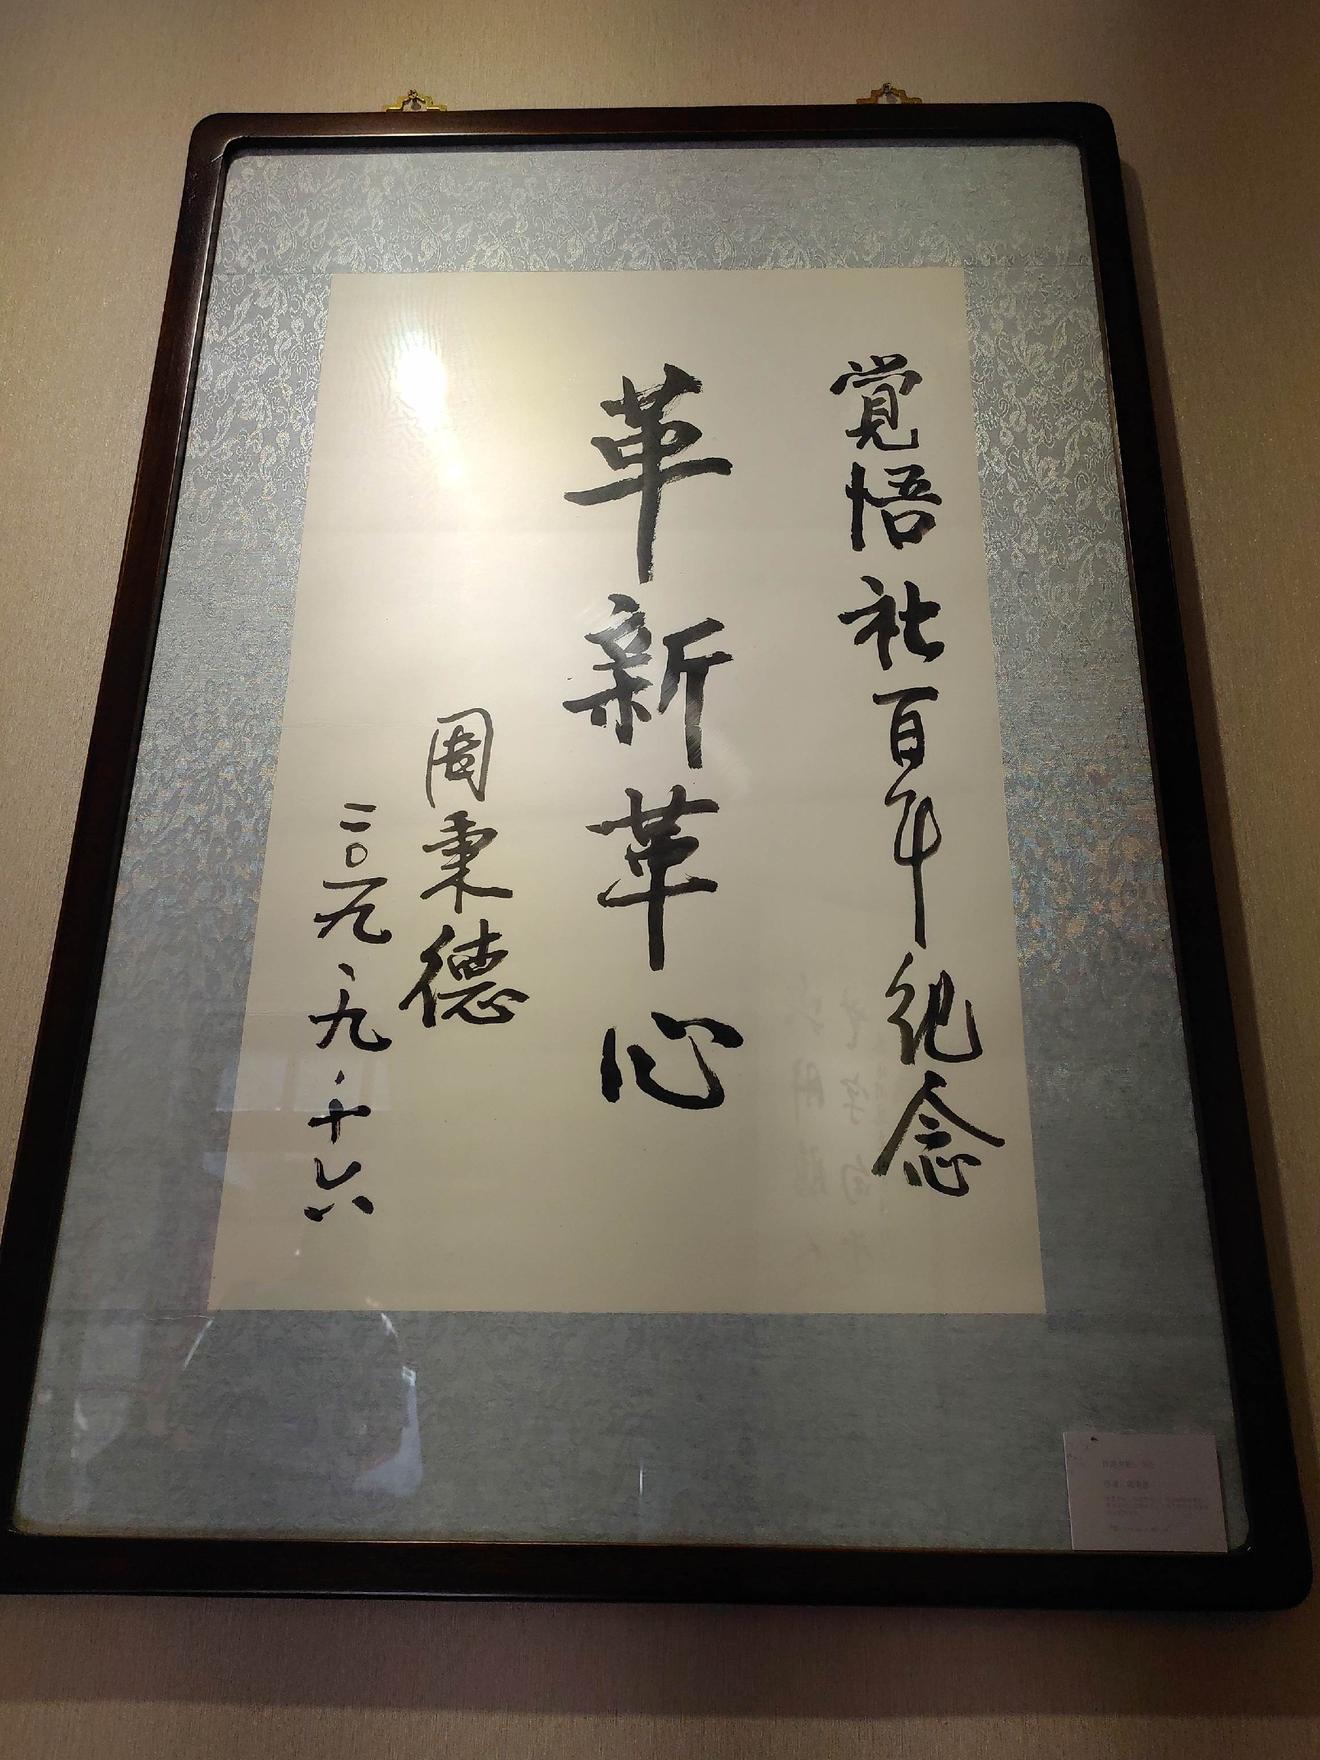 覺悟社百年纪念
革新革心
周秉德
二〇一九、九、十六